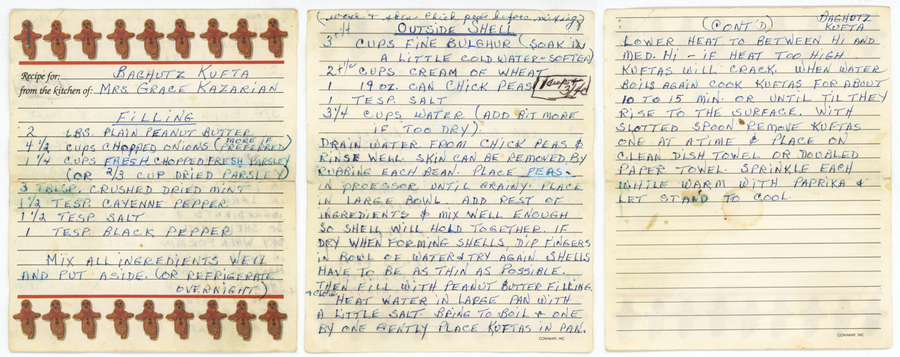 Recipe for: BAGHUTZ KUFTA
from the kitchen of: MRS. GRACE KAZARIAN
FILLING
2 LBS. PLAIN PEANUT BUTTER
MORE IF
4 1/2 CUPS CHOPPED ONIONS (PREFERED)
1 1/4 CUPS FRESH CHOPPED FRESH PARSLEY
(OR 2/3 CUP DRIED PARSLEY)
3 TBLSP. CRUSHED DRIED MINT
1 1/2 TESP. CAYENNE PEPPER
1 1/2 TESP SALT
1 TESP. BLACK PEPPER
MIX ALL INGREDIENTS WELL
AND PUT ASIDE. (OR REFRIGERATE
OVERNIGHT)
(wash & skin chick peas before mixing)
OUTSIDE SHELL
3 1/4 CUPS FINE BULGHUR (SOAK IN
A LITTLE COLD WATER - SOFTEN)
2 CUPS CREAM OF WHEAT
1 19 OZ. CAN CHICK PEAS
1 TESP. SALT
3 3/4 CUPS WATER (ADD BIT MORE
IF TOO DRY)
DRAIN WATER FROM CHICK PEAS &
RINSE WELL. SKIN CAN BE REMOVED BY
RUBBING EACH BEAN. PLACE PEAS
IN PROCESSOR UNTIL GRAINY. PLACE
IN LARGE BOWL. ADD REST OF
INGREDIENTS & MIX WELL ENOUGH
SO SHELL WILL HOLD TOGETHER. IF
DRY WHEN FORMING SHELLS, DIP FINGERS
IN BOWL OF WATER & TRY AGAIN SHELLS
HAVE TO BE AS THIN AS POSSIBLE.
THEN FILL WITH PEANUT BUTTER FILLING.
HEAT WATER IN LARGE PAN WITH
A LITTLE SALT. BRING TO BOIL & ONE
BY ONE GENTLY PLACE KUFTAS IN PAN.
COWMAR, INC
(CONT'D) BAGHUTZ
KUFTA
LOWER HEAT TO BETWEEN HI AND
MED. HI - IF HEAT TOO HIGH
KUFTAS WILL CRACK. WHEN WATER
BOILS AGAIN COOK KUFTAS FOR ABOUT
10 TO 15 MIN. OR UNTIL TIL THEY
RISE TO THE SURFACE. WITH
SLOTTED SPOON REMOVE KUFTAS
ONE AT A TIME & PLACE ON
CLEAN DISH TOWEL OR DOUBLED
PAPER TOWEL. SPRINKLE EACH
WHILE WARM WITH PAPRIKA &
LET STAND TO COOL.
COWMAR, INC